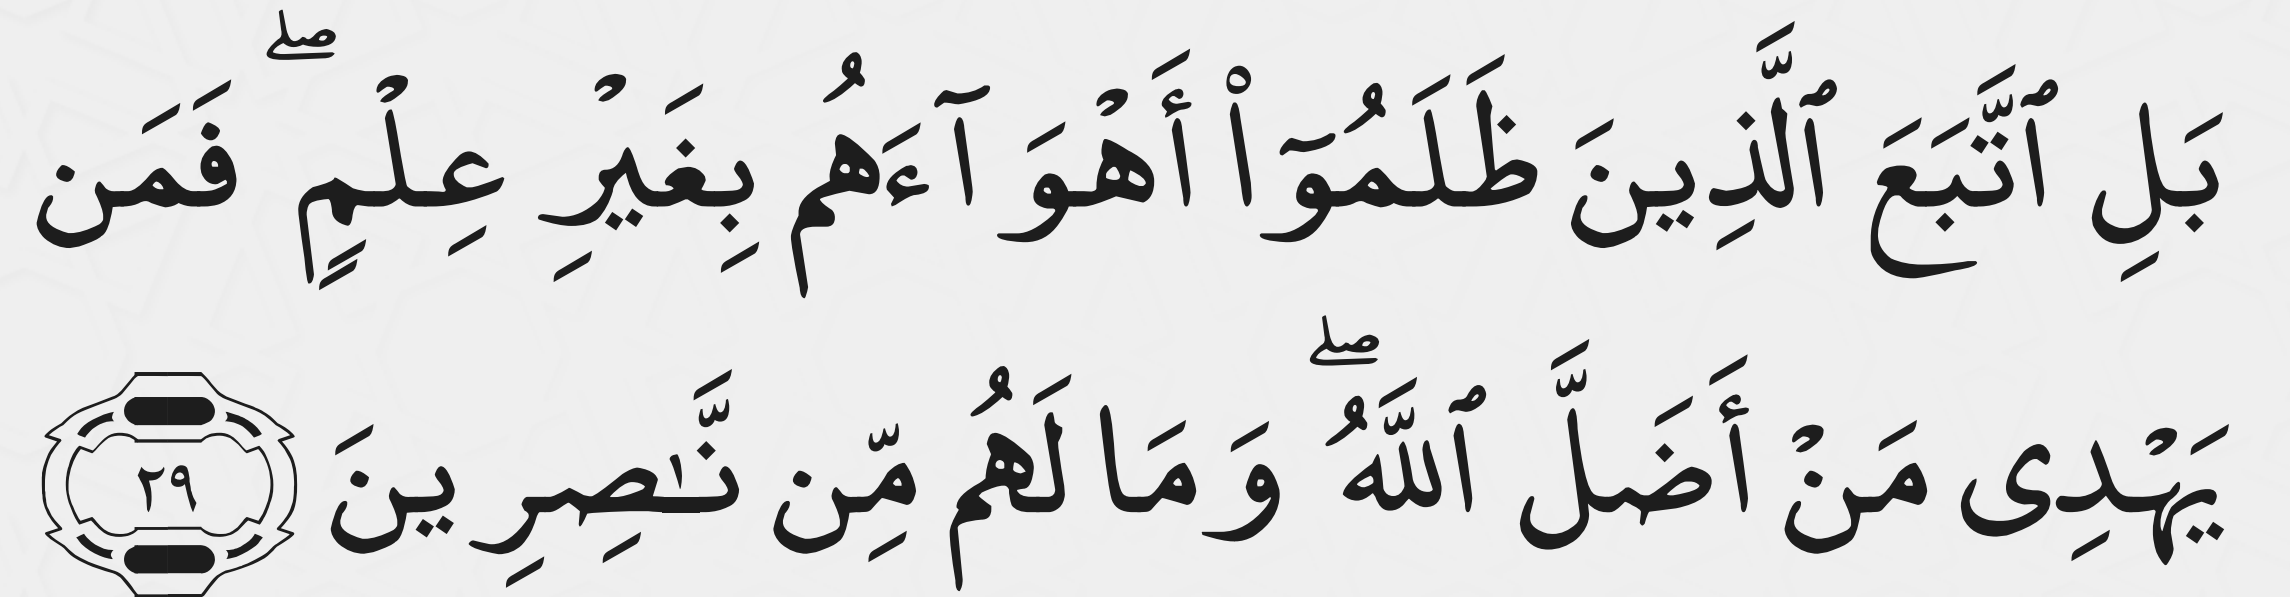 بَلِ ٱتَّبَعَ ٱلَّذِينَ ظَلَمُوٓا۟ أَهْوَآءَهُم بِغَيْرِ عِلْمٍۢ ۖ فَمَن
يَهْدِى مَنْ أَضَلَّ ٱللَّهُ ۖ وَمَا لَهُم مِّن نَّـٰصِرِينَ ٢٩